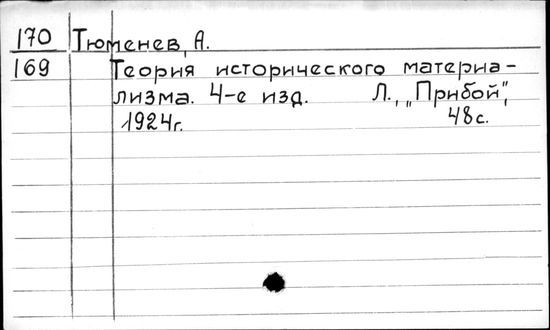 170 Тюменев, А.
169 Теория исторического материа-
лизма. 4-е изд. Л., „Прибой",
1924г. 48с.